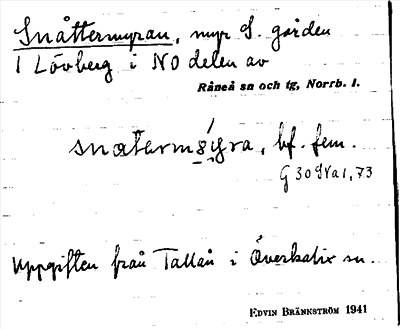 Snåttermyran, myr S. gården
1 Lövberg i NO delen av
Råneå sn och tg, Norrb. l.
bf. fem.
Uppgiften från Tallån i Överkalix sn.
EDVIN BRÄNNSTRÖM 1941